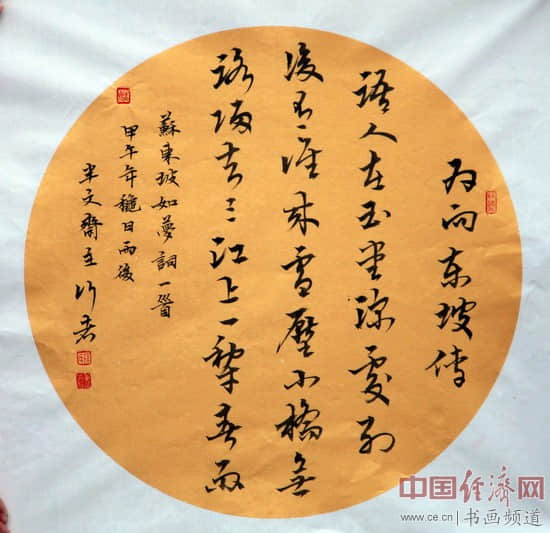 为向东坡传
语人在玉堂深处别
後有谁来雪壓小橋無
路归去二江上一犁春雨
蘇東坡如夢詞一首
甲午年穐日雨後
半文齋主
中国经济网
www.ce.cn|书画频道